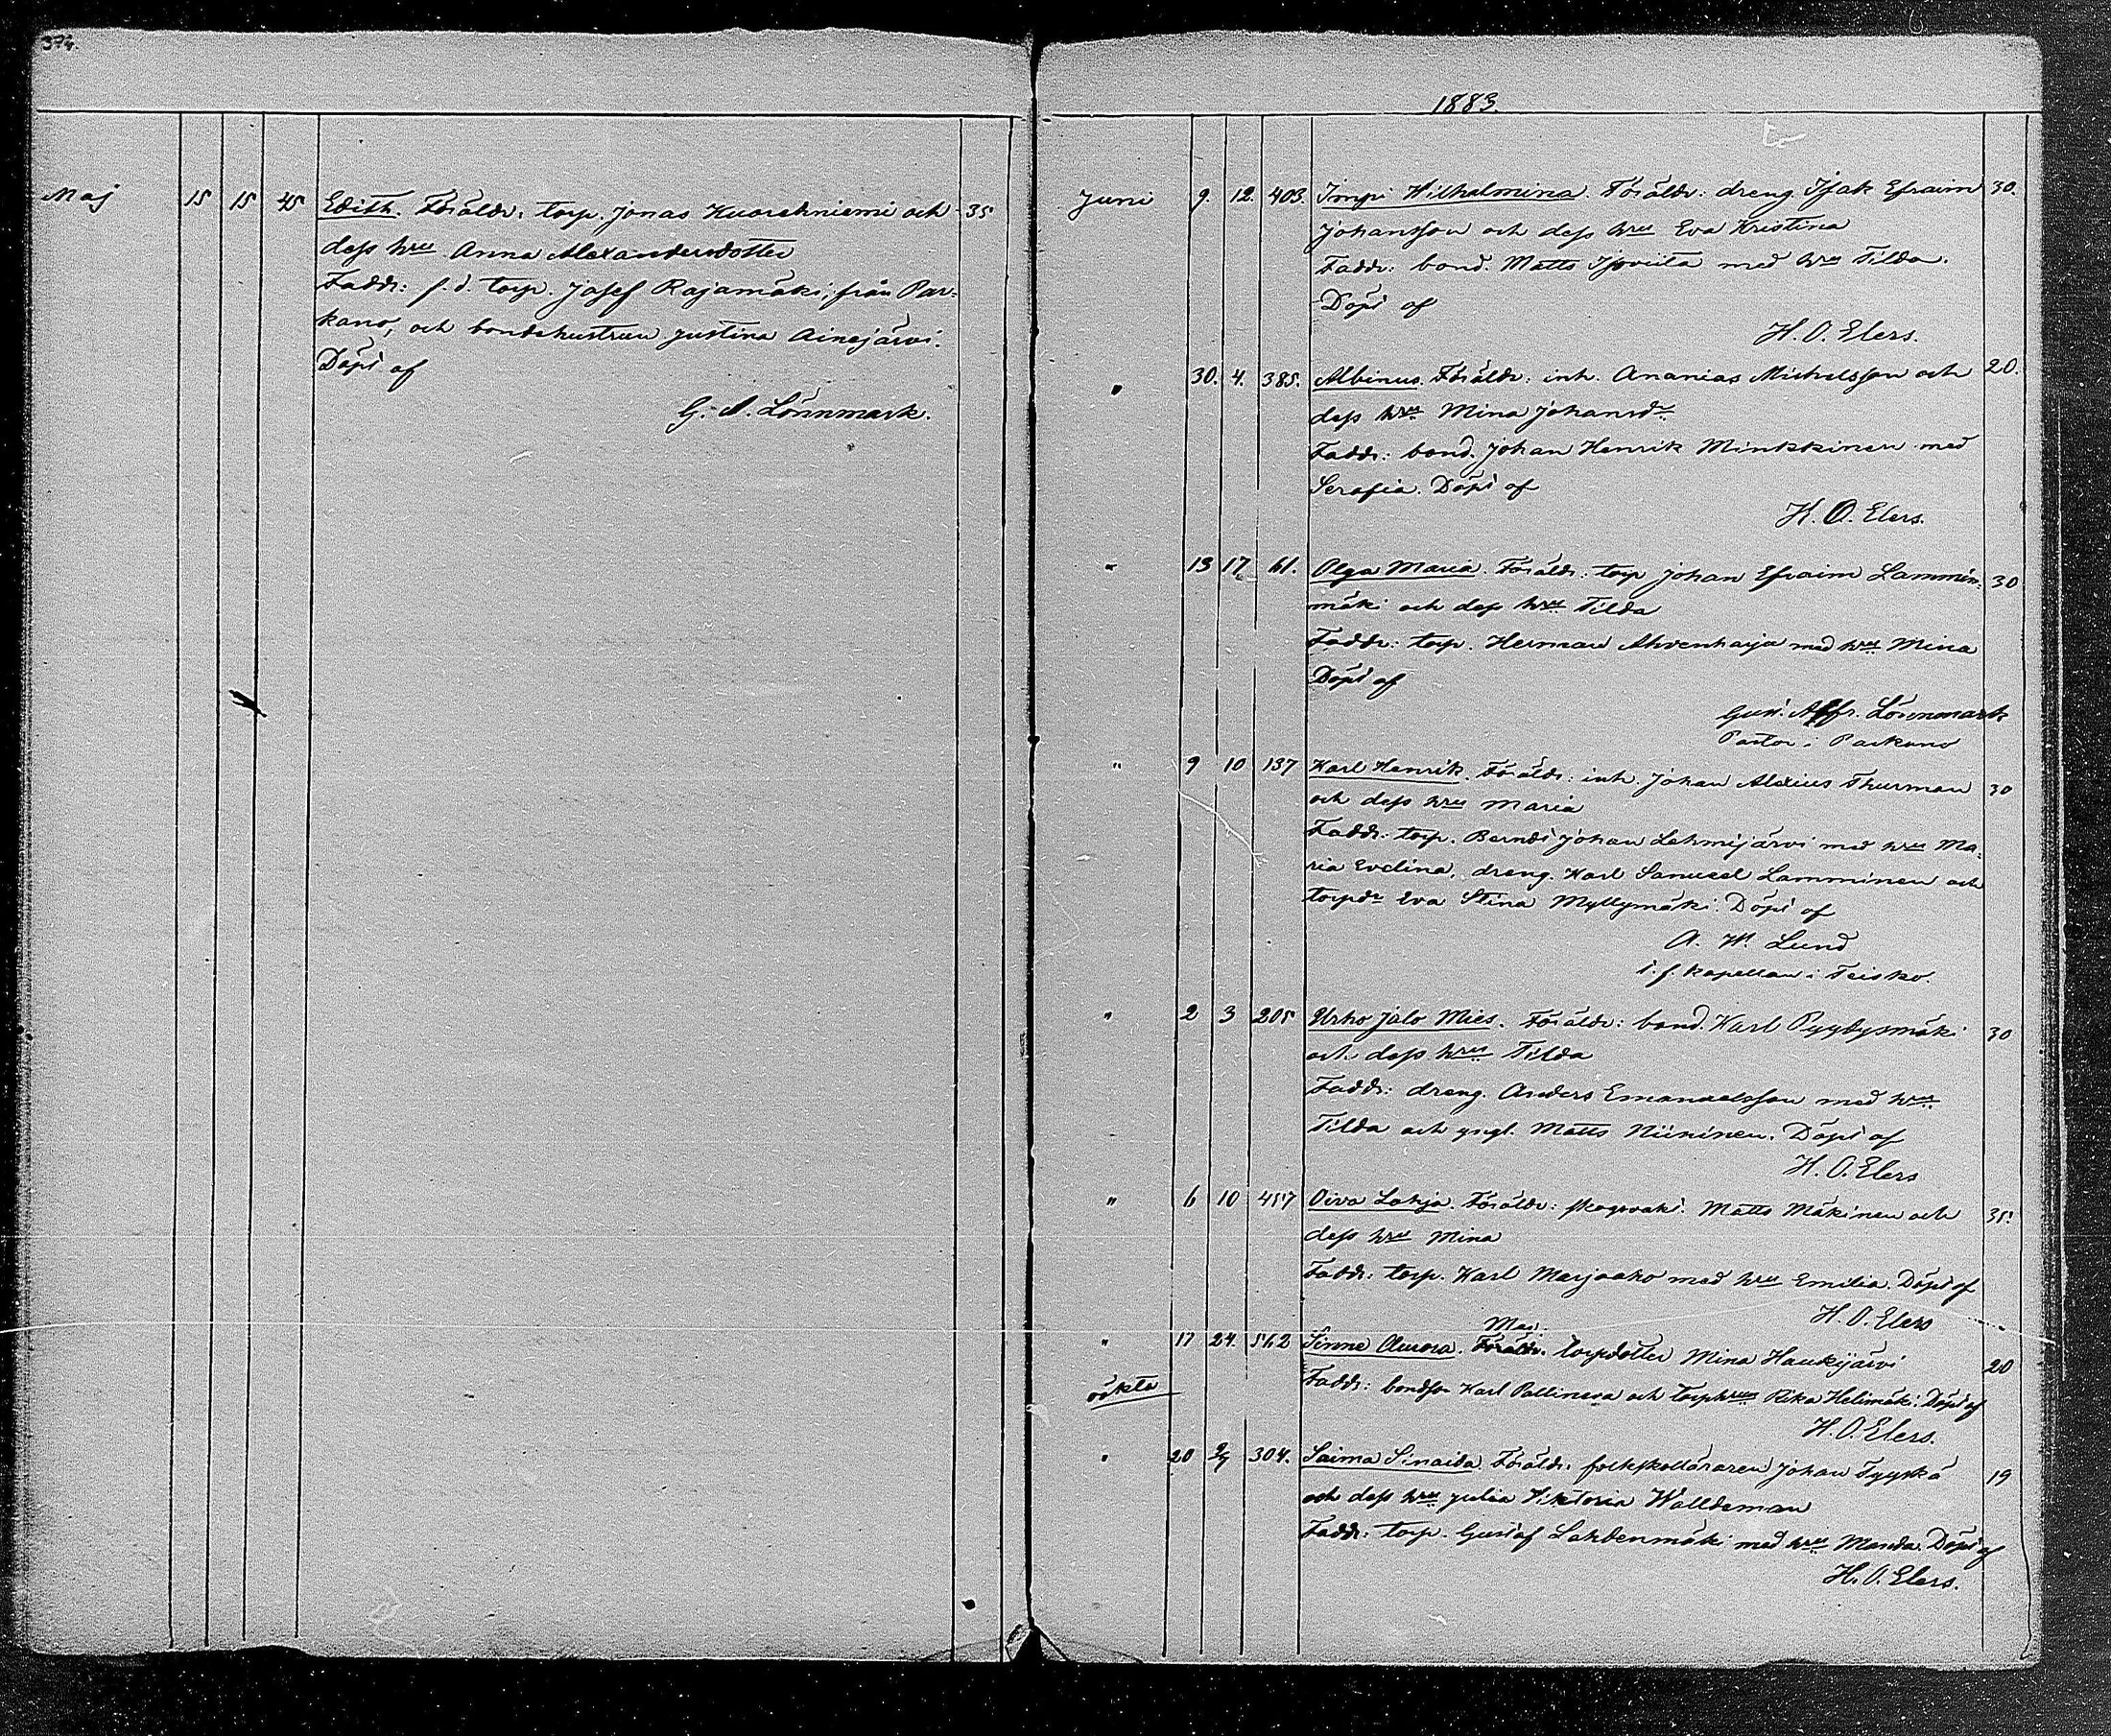 374.
Maj 15 15 45 Edith. Föräldr: torp. Jonas Kuorehniemi och 35
dess hru Anna Alexandersdotter
Faddr: f. d. torp. Josef Rajamäki, från Par-
kano, och bondehustrun Justina Ainejärvi.
Döpt af
G. A. Lönnmark.
1883.
Juni 9. 12. 403. Impi Wilhelmina. Föräldr: dreng Isak Efraim 30.
Johansson och dess hru Eva Kristina
Faddr: bond. Matts Isoviita med hru Tilda.
Döpt af
H. O. Elers.
" 30. 4. 385. Albinus. Föräldr: inh. Ananias Michelsson och 20.
dess hru Mina Johansdr
Faddr: bond. Johan Henrik Minkkinen med
Serafia. Döpt af
H. O. Elers.
" 13 17 61. Olga Maria. Föräldr: torp Johan Efraim Lammin- 30
mäki och dess hru Tilda
Faddr: torp. Herman Ahvenharja med hru Mina
Döpt af
Gust. Alfr. Lönnmark
Pastor i Parkano
" 9 10 137 Karl Henrik. Föräldr: inh. Johan Alexius Thurman 30
och dess hru Maria
Faddr: torp. Berndt Johan Lehmijärvi med hru Ma-
ria Evelina, dreng. Karl Samuel Lamminen och
torpdr Eva Stina Myllymäki. Döpt af
A. W. Lund
t. f. kapellan i Teisko.
" 2 3 205 Urho Jalo Mies. Föräldr: bond. Karl Pyydysmäki 30
och dess hru Tilda
Faddr: dreng. Anders Emanuelsson med hru
Tilda och yngl. Matts Niininen. Döpt af
H. O. Elers
" 6 10 457 Oiva Lahja. Föräldr: skogvakt. Matts Mäkinen och 35.
dess hru Mina
Faddr: torp. Karl Marjaaho med hru Emilia. Döpt af
H. O. Elers
Mod:
" 17 24. 562 Sinne Aurora. Föräldr. torpdotter Mina Haukijärvi 20
oäkta Faddr: bondson Karl Pallinera och torphru Rika Helimäki. Döpt af
H. O. Elers.
" 20 2/7 304. Saima Sinaida. Föräldr: folkskolläraren Johan Tyyskä 19
och dess hru Julia Viktoria Walldeman
Faddr: torp. Gustaf Lahdenmäki med hru Manda. Döpt af
H. O. Elers.